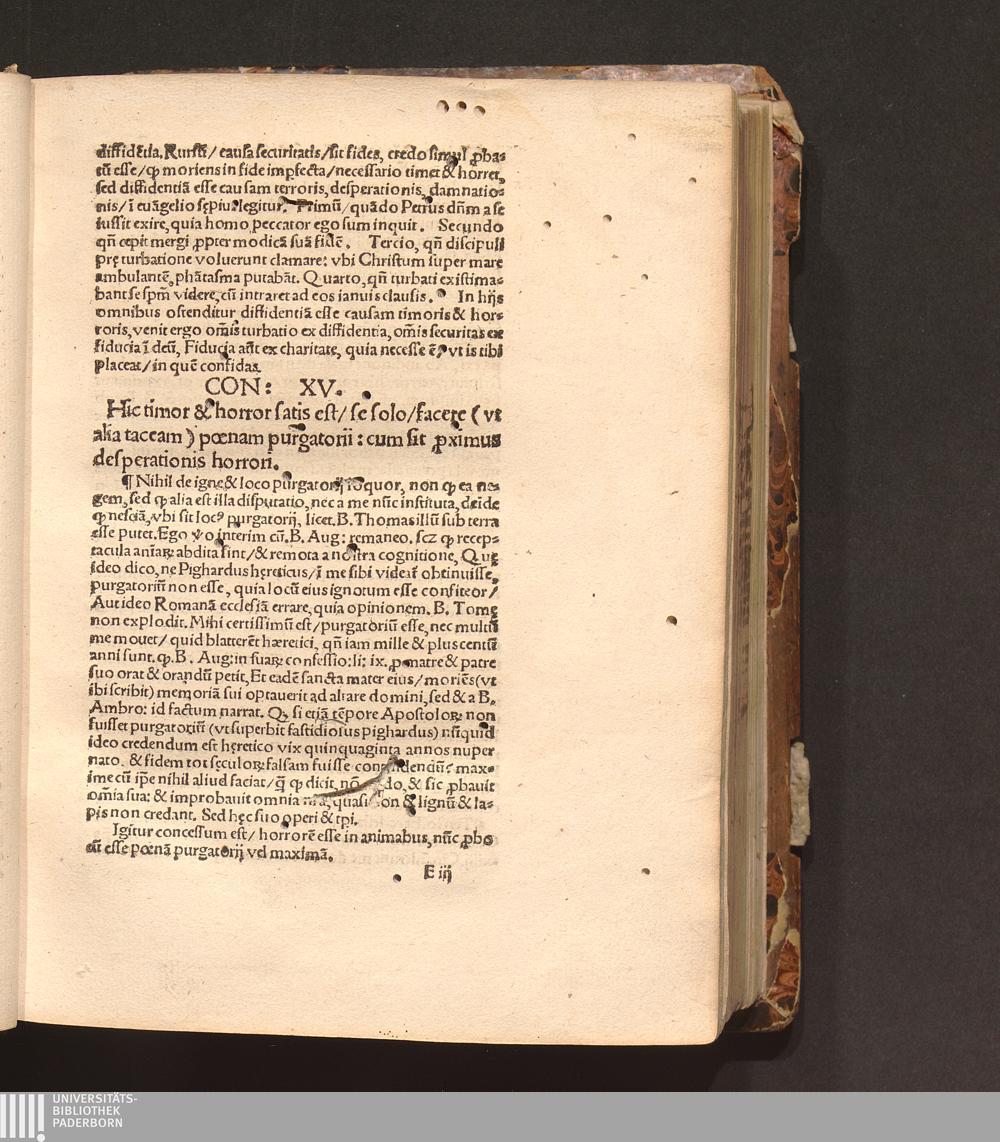 diffidẽtia. Rursũ/ causa securitatis/sit fides, credo simul ꝓba-
tũ esse/ ꝙ moriens in fide imꝑfecta/necessario timet & horret,
sed diffidentiã esse causam terroris, desperationis, damnatio-
nis/ ĩ euãgelio sępius legitur. Primũ/ quãdo Petrus dñm a se
iussit exire, quia homo peccator ego sum inquit. Secundo
qñ cepit mergi ꝓpter modicã suã fidẽ. Tercio, qñ discipuli
prę turbatione voluerunt clamare: vbi Christum super mare
ambulantẽ, phãtasma putabãt. Quarto, qñ turbati existima-
bant se spm̃ videre, cũ intraret ad eos ianuis clausis. In hijs
omnibus ostenditur diffidentiã esse causam timoris & hor-
roris, venit ergo om̃is turbatio ex diffidentia, om̃is securitas ex
fiducia ĩ deũ, Fiducia aũt ex charitate, quia necesse ẽ, vt is tibi
placeat/ in quẽ confidas.
CON: XV.
Hic timor & horror satis est/ se solo/facere (vt
alia taceam) pœnam purgatorii: cum sit ꝓximus
desperationis horrori.
¶ Nihil de igne & loco purgatorij loquor, non ꝙ ea ne-
gem, sed ꝙ alia est illa disputatio, nec a me nũc instituta, deĩde
ꝙ nesciã, vbi sit locꝰ purgatorij, licet. B. Thomas illũ sub terra
esse putet. Ego ṽo interim cũ. B. Aug: remaneo. scz ꝙ recep-
tacula aniaꝝ abdita sint/ & remota a nostra cognitione, Quę
ideo dico, ne Pighardus hęreticus/ ĩ me sibi videať obtinuisse,
purgatoriũ non esse, quia locũ eius ignotum esse confiteor/
Aut ideo Romanã ecclesiã errare, quia opinionem. B. Tomę
non explodit. Mihi certissimũ est/ purgatoriũ esse, nec multũ
me mouet/ quid blatterẽt hæretici, qñ iam mille & plus centũ
anni sunt. ꝙ. B. Aug: in suaꝝ confessio: li: ix. ꝓ matre & patre
suo orat & orandũ petit, Et eadẽ sancta mater eius/ moriẽs (vt
ibi scribit) memoriã sui optauerit ad altare domini, sed & a B.
Ambro: id factum narrat. Qꝫ si etiã tẽpore Apostoloꝝ non
fuisset purgatoriũ (vt superbit fastidiosus pighardus) nũquid
ideo credendum est hęretico vix quinquaginta annos nuper
nato. & fidem tot sęculoꝝ falsam fuisse contendendũ? max-
ime cũ ip̃e nihil aliud faciat/ q̃ ꝙ dicit, nõ do, & sic ꝓbauit
om̃ia sua: & improbauit omnia nr̃a, quasi non & lignũ & la-
pis non credant. Sed hęc suo operi & tpi.
Igitur concessum est/ horrorẽ esse in animabus, nũc ꝓbo
eũ esse pœnã purgatorij vel maximã.
E iij
UNIVERSITÄTS-
BIBLIOTHEK
PADERBORN